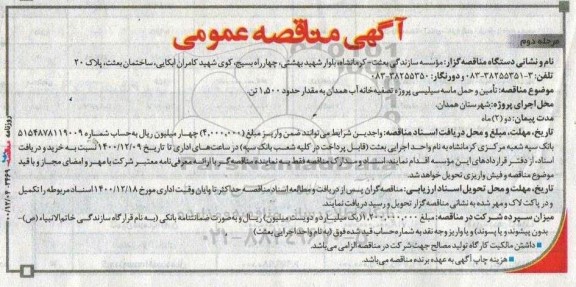 آگهی مناقصه عمومی
مرحله دوم
نام و نشانی دستگاه مناقصه گزار: مؤسسه سازندگی بعثت - کرمانشاه، بلوار شهید بهشتی، چهارراه بسیج، کوی شهید کامران ابکایی، ساختمان بعثت، پلاک ۲۰
تلفن: ۳-۳۸۲۵۵۳۵۱-۰۸۳ و دورنگار: ۳۸۲۵۵۳۵۰-۰۸۳
موضوع مناقصه: تأمین و حمل ماسه سیلیسی پروژه تصفیه خانه آب همدان به مقدار حدود ۱,۵۰۰ تن
محل اجرای پروژه: شهرستان همدان.
مدت پیمان: دو (۲) ماه
تاریخ، مهلت، مبلغ و محل دریافت اسناد مناقصه: واجدین شرایط می توانند ضمن واریز مبلغ (۴,۰۰۰,۰۰۰) چهار میلیون ریال به حساب شماره ۵۱۵۴۸۷۸۱۱۹۰۰۹
بانک سپه شعبه مرکزی کرمانشاه به نام واحد اجرایی بعثت (قابل پرداخت در کلیه شعب بانک سپه) در ساعت های اداری تا تاریخ ۱۴۰۰/۱۲/۰۹ نسبت به خرید و دریافت
اسناد، از دفتر قراردادهای این مؤسسه اقدام نمایند. اسناد و مدارک مناقصه فقط به نماینده مناقصه گر با ارائه معرفی نامه معتبر شرکت با مهر و امضای مجاز و با قید
موضوع مناقصه و فیش واریزی تحویل خواهد شد.
تاریخ، مهلت و محل تحویل اسناد ارزیابی: مناقصه گران پس از دریافت و مطالعه اسناد مناقصه حداکثر تا پایان وقت اداری مورخ ۱۴۰۰/۱۲/۱۸ اسناد مربوطه را تکمیل
و در پاکت لاک و مهر شده به نشانی مناقصه گزار تحویل و رسید دریافت نمایند.
میزان سپرده شرکت در مناقصه: مبلغ ۱,۲۰۰,۰۰۰,۰۰۰ (یک میلیارد و دویست میلیون) ریال و به صورت ضمانتنامه بانکی (به نام قرارگاه سازندگی خاتم الانبیاء (ص) -
بدون پیشوند و یا پسوند) و یا واریز وجه نقد به شماره حساب قید شده فوق (به نام واحد اجرایی بعثت)
■ داشتن مالکیت کارگاه تولید مصالح جهت شرکت در مناقصه الزامی می باشد.
■ هزینه چاپ آگهی به عهده برنده مناقصه می باشد.